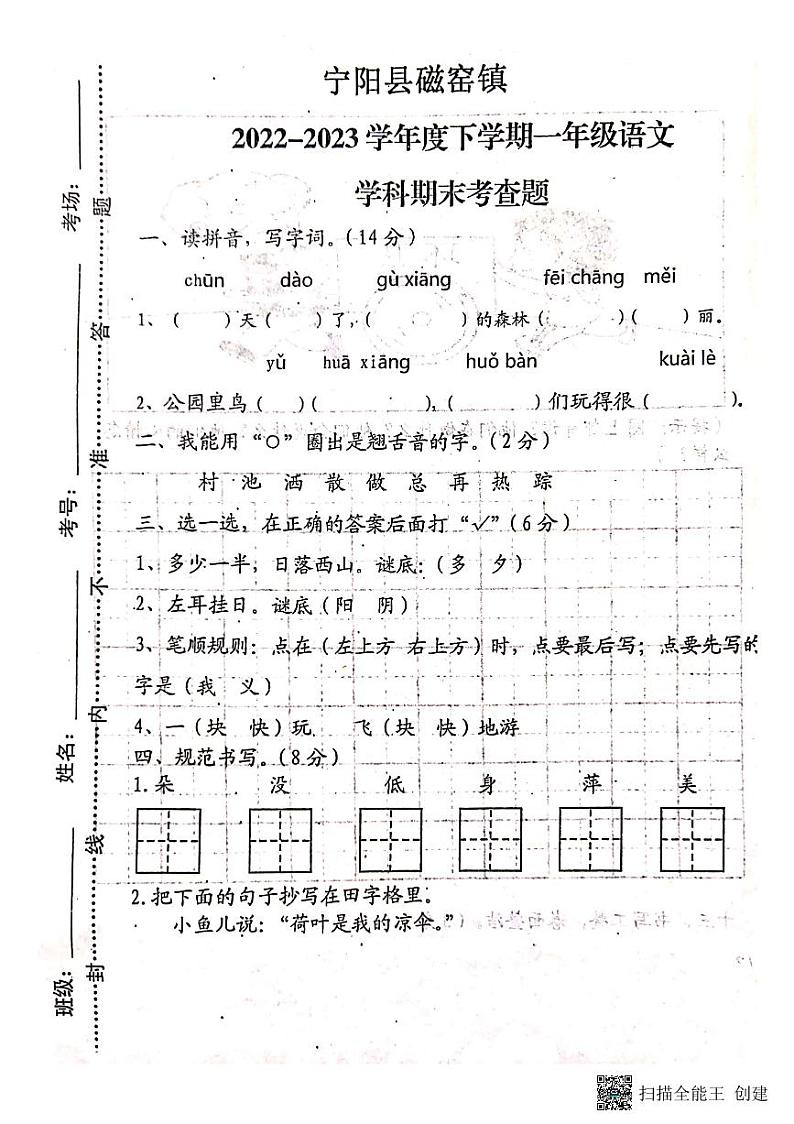 宁阳县磁窑镇
2022-2023学年度下学期一年级语文
学科期末考查题
一、读拼音，写字词。(14分)
chūn dào gù xiāng fēi chāng měi
1、( )天( )了,( )的森林( )( )丽。
yǔ huā xiāng huǒ bàn kuài lè
2、公园里鸟( )( ),( )们玩得很( )。
二、我能用“○”圈出是翘舌音的字。(2分)
村 池 洒 散 做 总 再 热 踪
三、选一选，在正确的答案后面打“√”(6分)
1、多少一半；日落西山。谜底：(多 夕)
2、左耳挂日。谜底(阳 阴)
3、笔顺规则：点在(左上方 右上方)时，点要最后写；点要先写的
字是(我 义)
4、一(块 快)玩 飞(块 快)地游
四、规范书写。(8分)
1.朵 没 低 身 萍 美
2.把下面的句子抄写在田字格里。
小鱼儿说：“荷叶是我的凉伞。”
考场：
考号：
姓名：
班级：
封 线 内 不 准 答 题
扫描全能王 创建